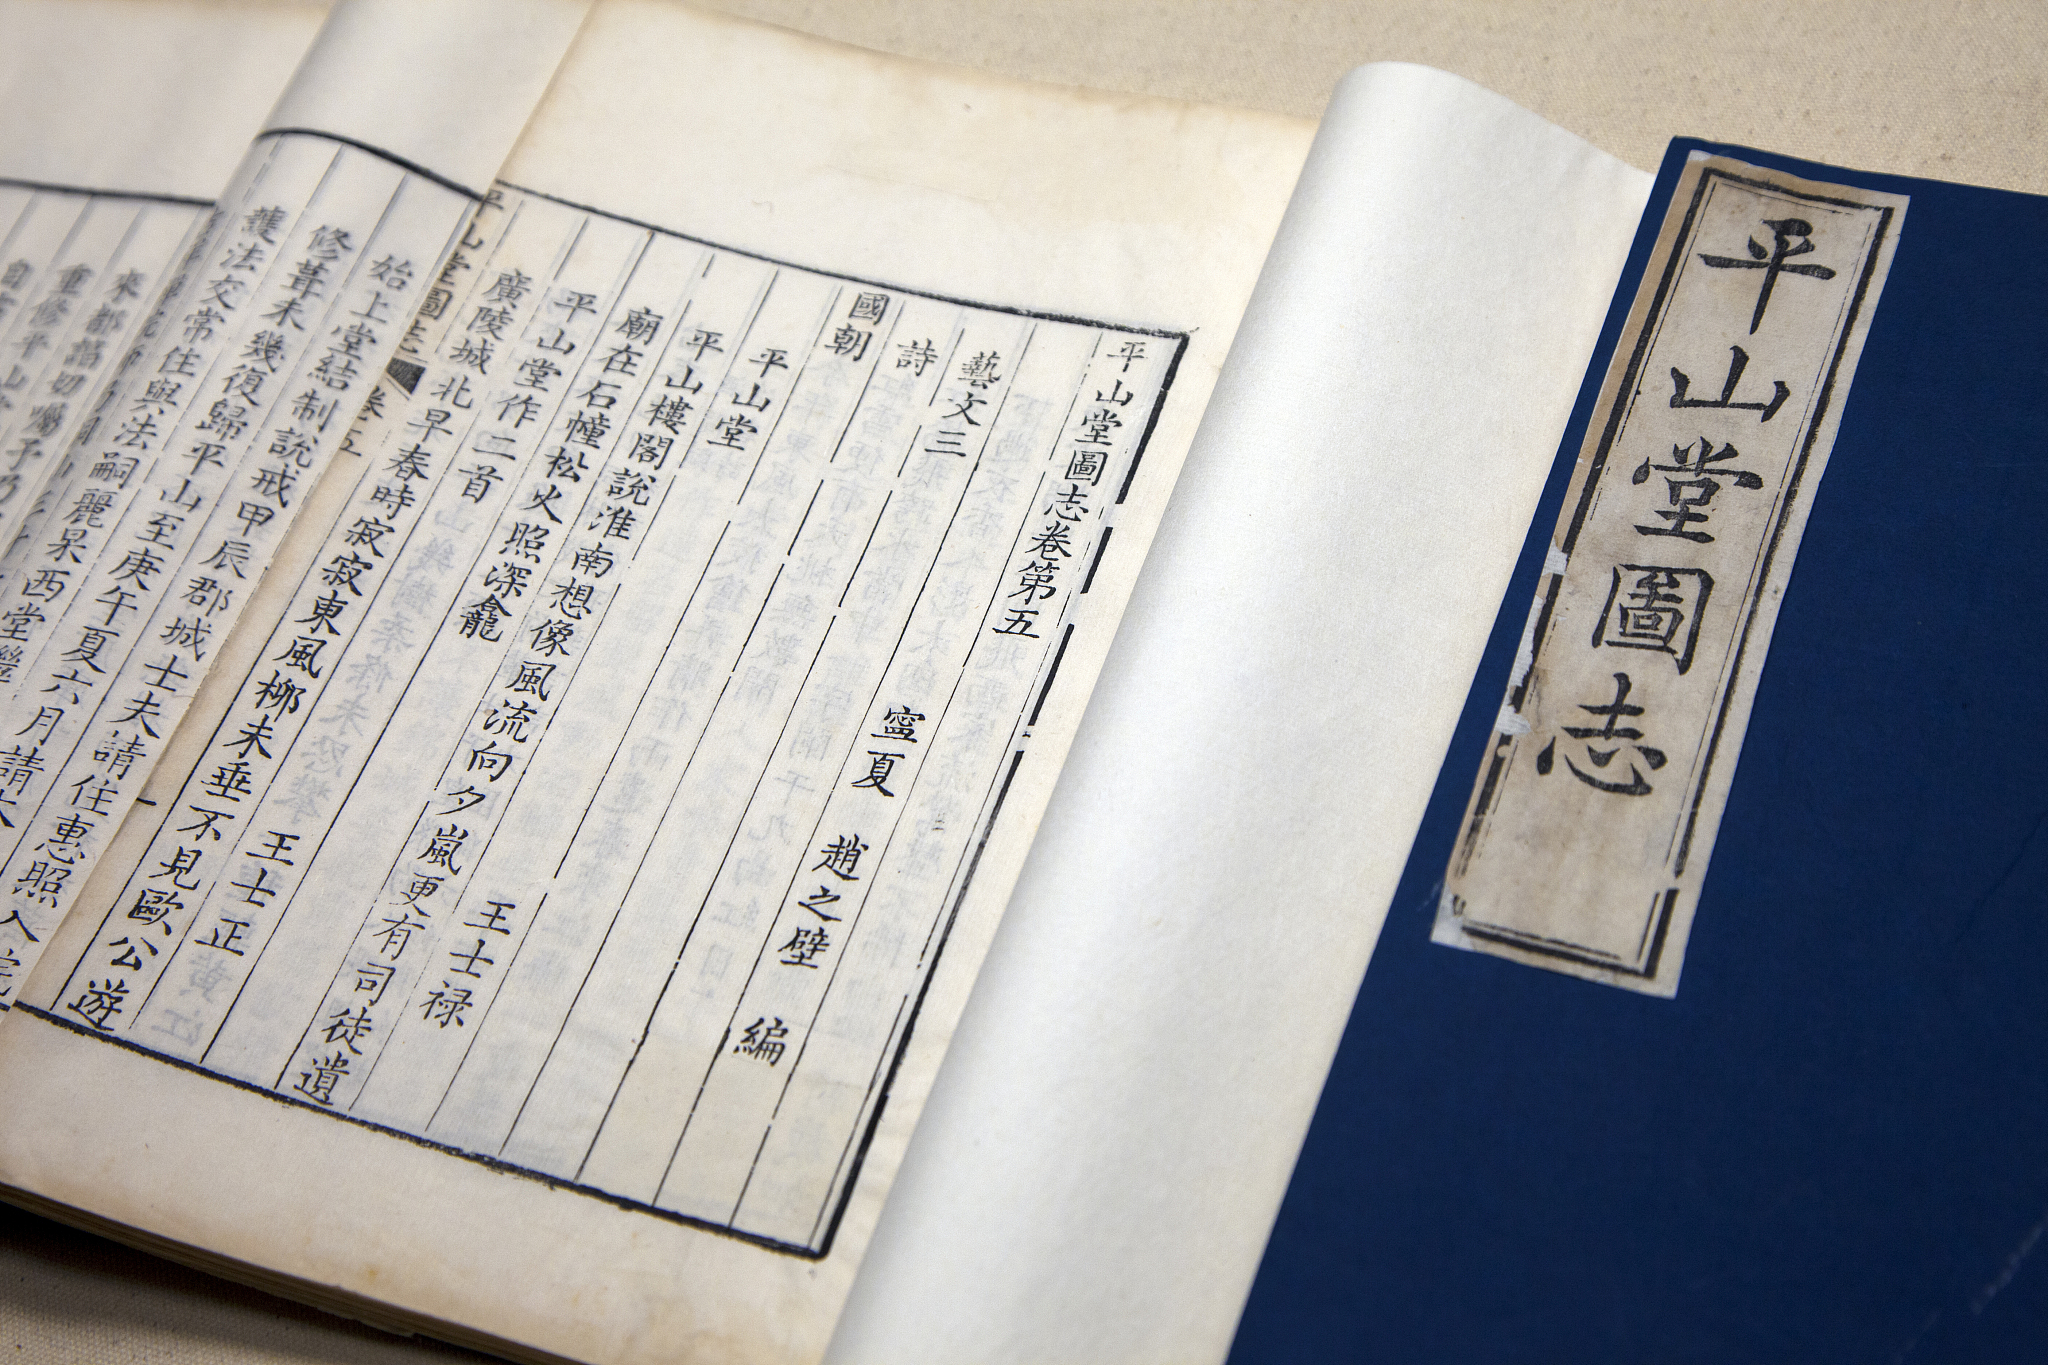 平山堂圖志
平山堂圖志卷第五
寧夏 趙之壁 編
藝文三
詩
國朝
平山堂 王士禄
平山樓閣說淮南想像風流向夕嵐更有司徒遺
廟在石幢松火照深龕
平山堂作二首 王士正
廣陵城北早春時寂寂東風柳未垂不見歐公遊
平山堂圖志 卷五
始上堂結制說戒甲辰郡城士夫請住惠照入院
修葺未幾復歸平山至庚午夏六月請
護法交常住與法嗣麗杲西堂繼
重修平山堂